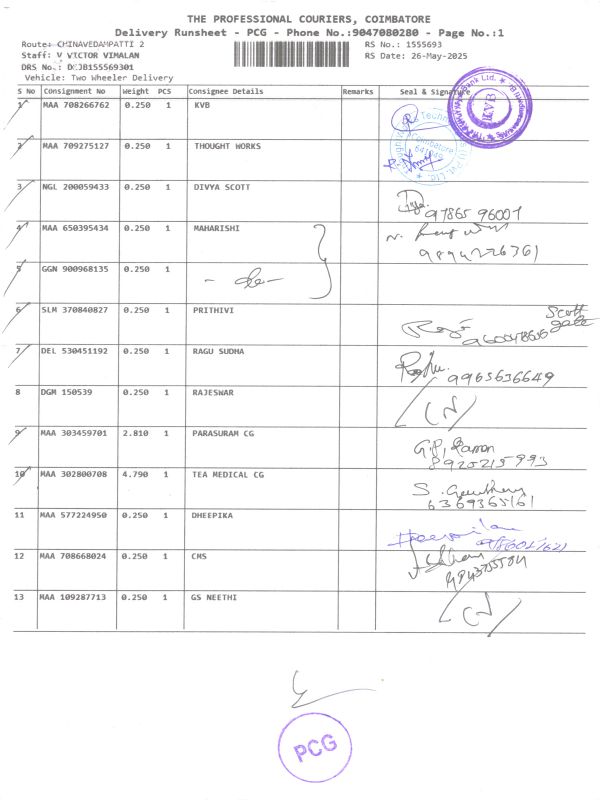 THE PROFESSIONAL COURIERS, COIMBATORE
Delivery Runsheet - PCG - Phone No.:9047080280 - Page No.:1
Route: CHINAVEDAMPATTI 2
RS No.: 1555693
Staff: V VICTOR VIMALAN
RS Date: 26-May-2025
DRS No.: DRJB155569301
Vehicle: Two Wheeler Delivery
S No Consignment No Weight PCS Consignee Details Remarks Seal & Signature
1 MAA 708266762 0.250 1 KVB
KVB
2 MAA 709275127 0.250 1 THOUGHT WORKS
Coimbatore
641049
3 NGL 200059433 0.250 1 DIVYA SCOTT
97865 96007
4 MAA 650395434 0.250 1 MAHARISHI
9894226361
5 GGN 900968135 0.250 1
- do -
6 SLM 370840827 0.250 1 PRITHIVI
Scott
7 DEL 530451192 0.250 1 RAGU SUDHA
9965636649
8 DGM 150539 0.250 1 RAJESWAR
9 MAA 303459701 2.810 1 PARASURAM CG
8925215993
10 MAA 302800708 4.790 1 TEA MEDICAL CG
6369365161
11 MAA 577224950 0.250 1 DHEEPIKA
12 MAA 708668024 0.250 1 CMS
13 MAA 109287713 0.250 1 GS NEETHI
PCG